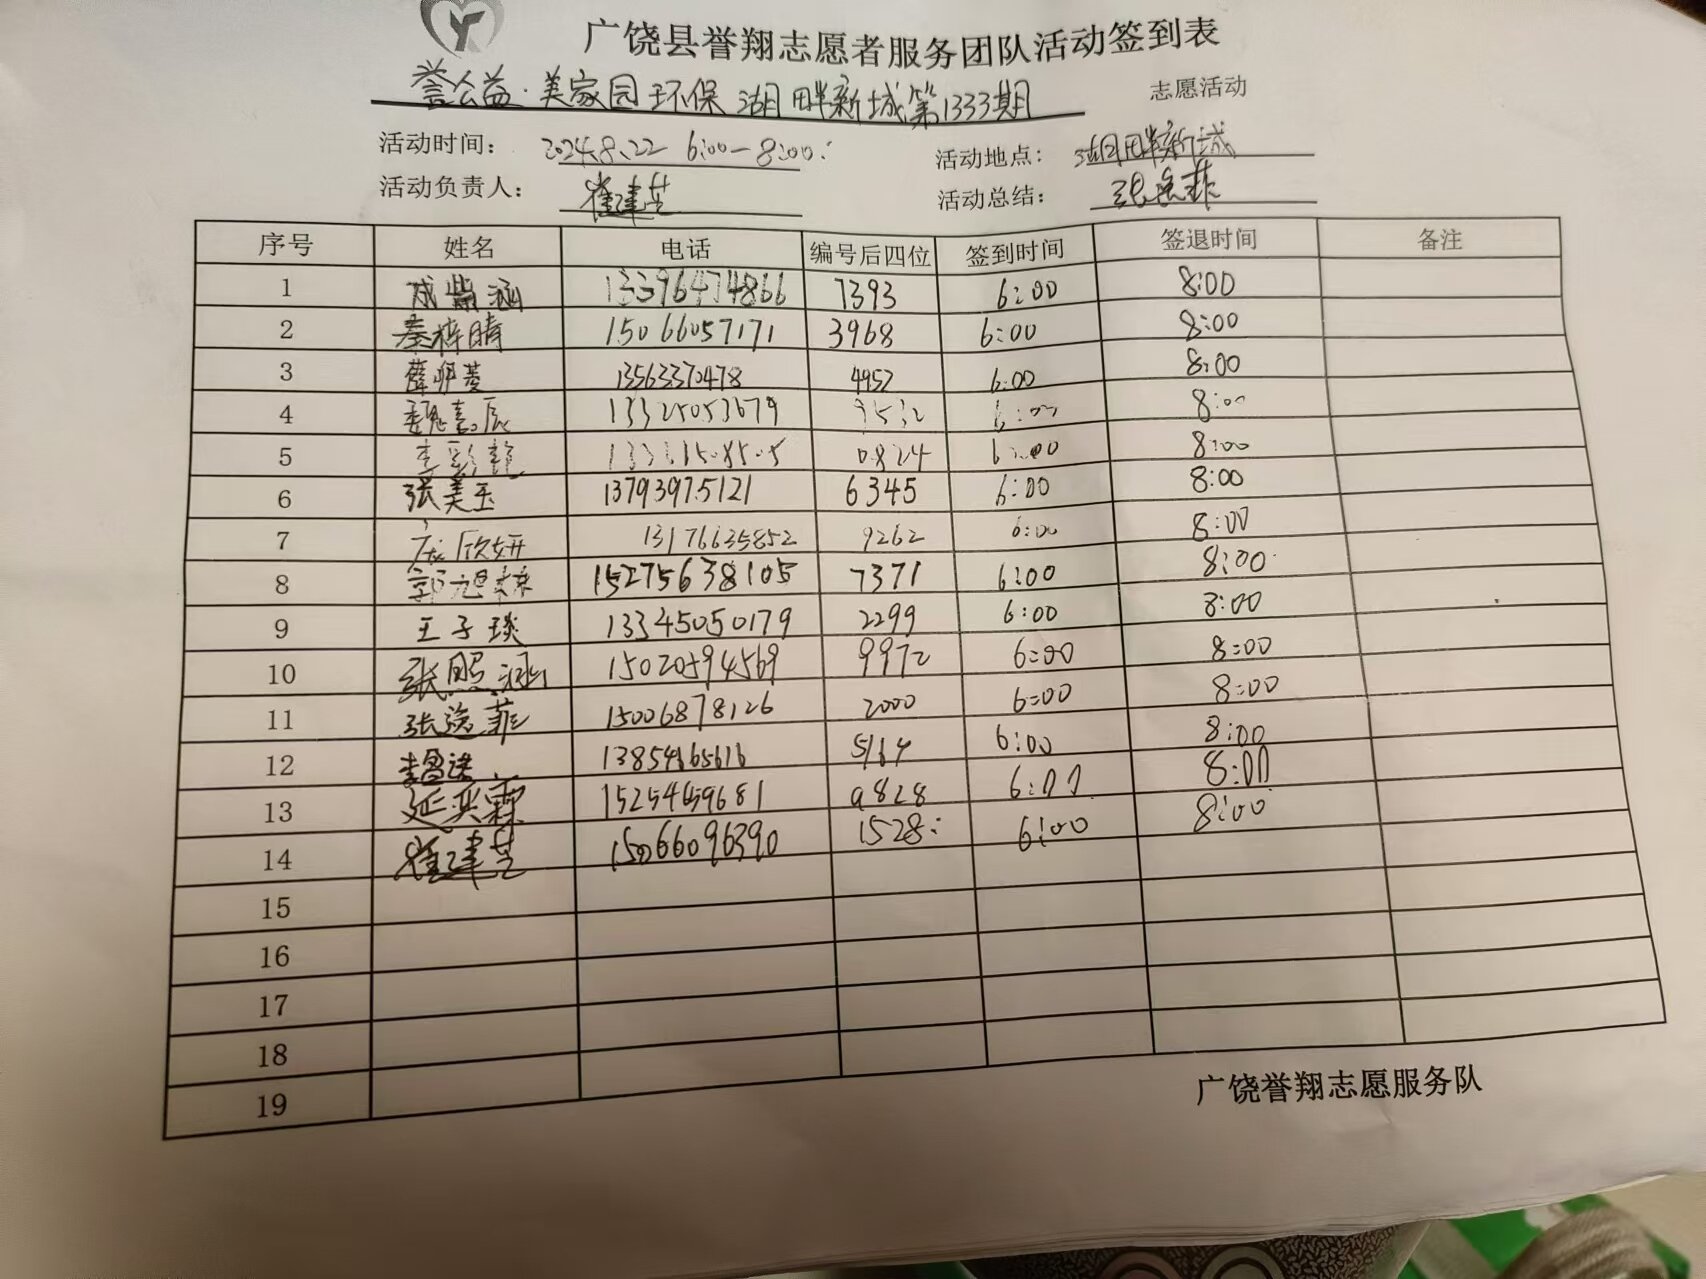 广饶县誉翔志愿者服务团队活动签到表
誉公益·美家园环保 湖畔新城第1333期 志愿活动
活动时间： 2024.8.22 6:00—8:00 活动地点： 湖畔新城
活动负责人： 崔建芝 活动总结： 张
序号 姓名 电话 编号后四位 签到时间 签退时间 备注
1 成紫涵 13396474866 7393 6:00 8:00
2 秦梓晴 15066057171 3968 6:00 8:00
3 薛明菱 13563370478 4952 6:00 8:00
4 魏嘉辰 13325053679 6:00 8:00
5 李 0824 6:00 8:00
6 张美玉 13793975121 6345 6:00 8:00
7 欣妍 13176635852 9262 6:00 8:00
8 郭旭 15275638105 7371 6:00 8:00
9 王子琰 13345050179 2299 6:00 8:00
10 张熙涵 15020594569 9972 6:00 8:00
11 张 菲 15006878126 2000 6:00 8:00
12 李 13854665616 5164 6:00 8:00
13 延奕霖 15254659681 9828 6:00 8:00
14 崔建芝 15066096390 1528 6:00 8:00
15
16
17
18
19
广饶誉翔志愿服务队